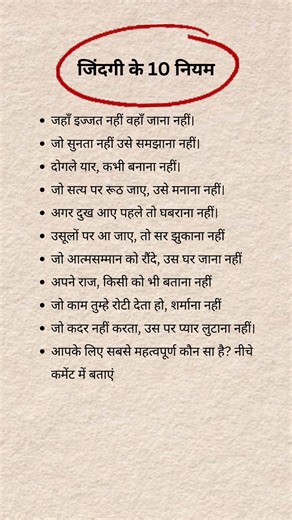 जिंदगी के 10 नियम
• जहाँ इज्जत नहीं वहाँ जाना नहीं।
• जो सुनता नहीं उसे समझाना नहीं।
• दोगले यार, कभी बनाना नहीं।
• जो सत्य पर रूठ जाए, उसे मनाना नहीं।
• अगर दुख आए पहले तो घबराना नहीं।
• उसूलों पर आ जाए, तो सर झुकाना नहीं
• जो आत्मसम्मान को रौंदे, उस घर जाना नहीं
• अपने राज, किसी को भी बताना नहीं
• जो काम तुम्हे रोटी देता हो, शर्माना नहीं
• जो कदर नहीं करता, उस पर प्यार लुटाना नहीं।
• आपके लिए सबसे महत्वपूर्ण कौन सा है? नीचे
कमेंट में बताएं